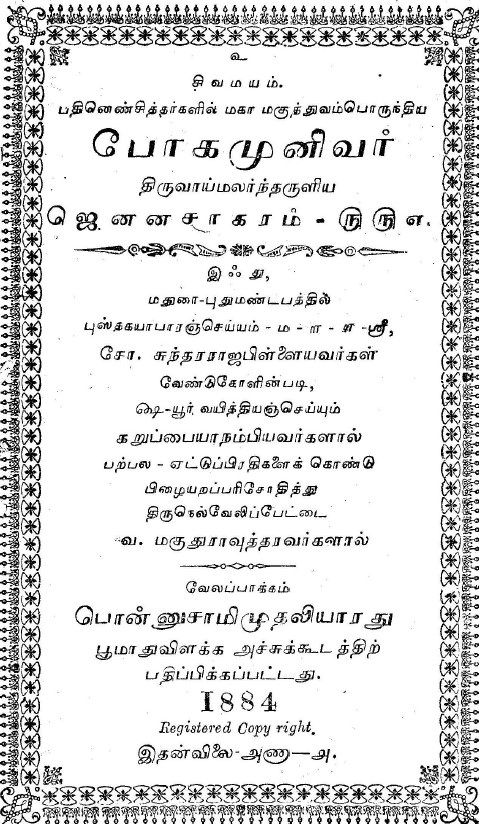 உ
சிவமயம்.
பதினெண்சித்தர்களில் மகா மகுத்துவம்பொருந்திய
போகமுனிவர்
திருவாய்மலர்ந்தருளிய
ஜெனனசாகரம் - ௫௫௭.
இஃது,
மதுரை-புதுமண்டபத்தில்
புஸ்தகயாபாரஞ்செய்யும் - ம - ள - ள - ஸ்ரீ,
சோ. சுந்தரராஜபிள்ளையவர்கள்
வேண்டுகோளின்படி,
ஷை-யூர் வயித்தியஞ்செய்யும்
கறுப்பையாநம்பியவர்களால்
பற்பல - ஏட்டுப்பிரதிகளைக் கொண்டு
பிழையறப்பரிசோதித்து
திருநெல்வேலிப்பேட்டை
வ. மகுதுராவுத்தரவர்களால்
வேலப்பாக்கம்
பொன்னுசாமிமுதலியாரது
பூமாதுவிளக்க அச்சுக்கூடத்திற்
பதிப்பிக்கப்பட்டது.
1884
Registered Copy right.
இதன்விலை-அணு—அ.